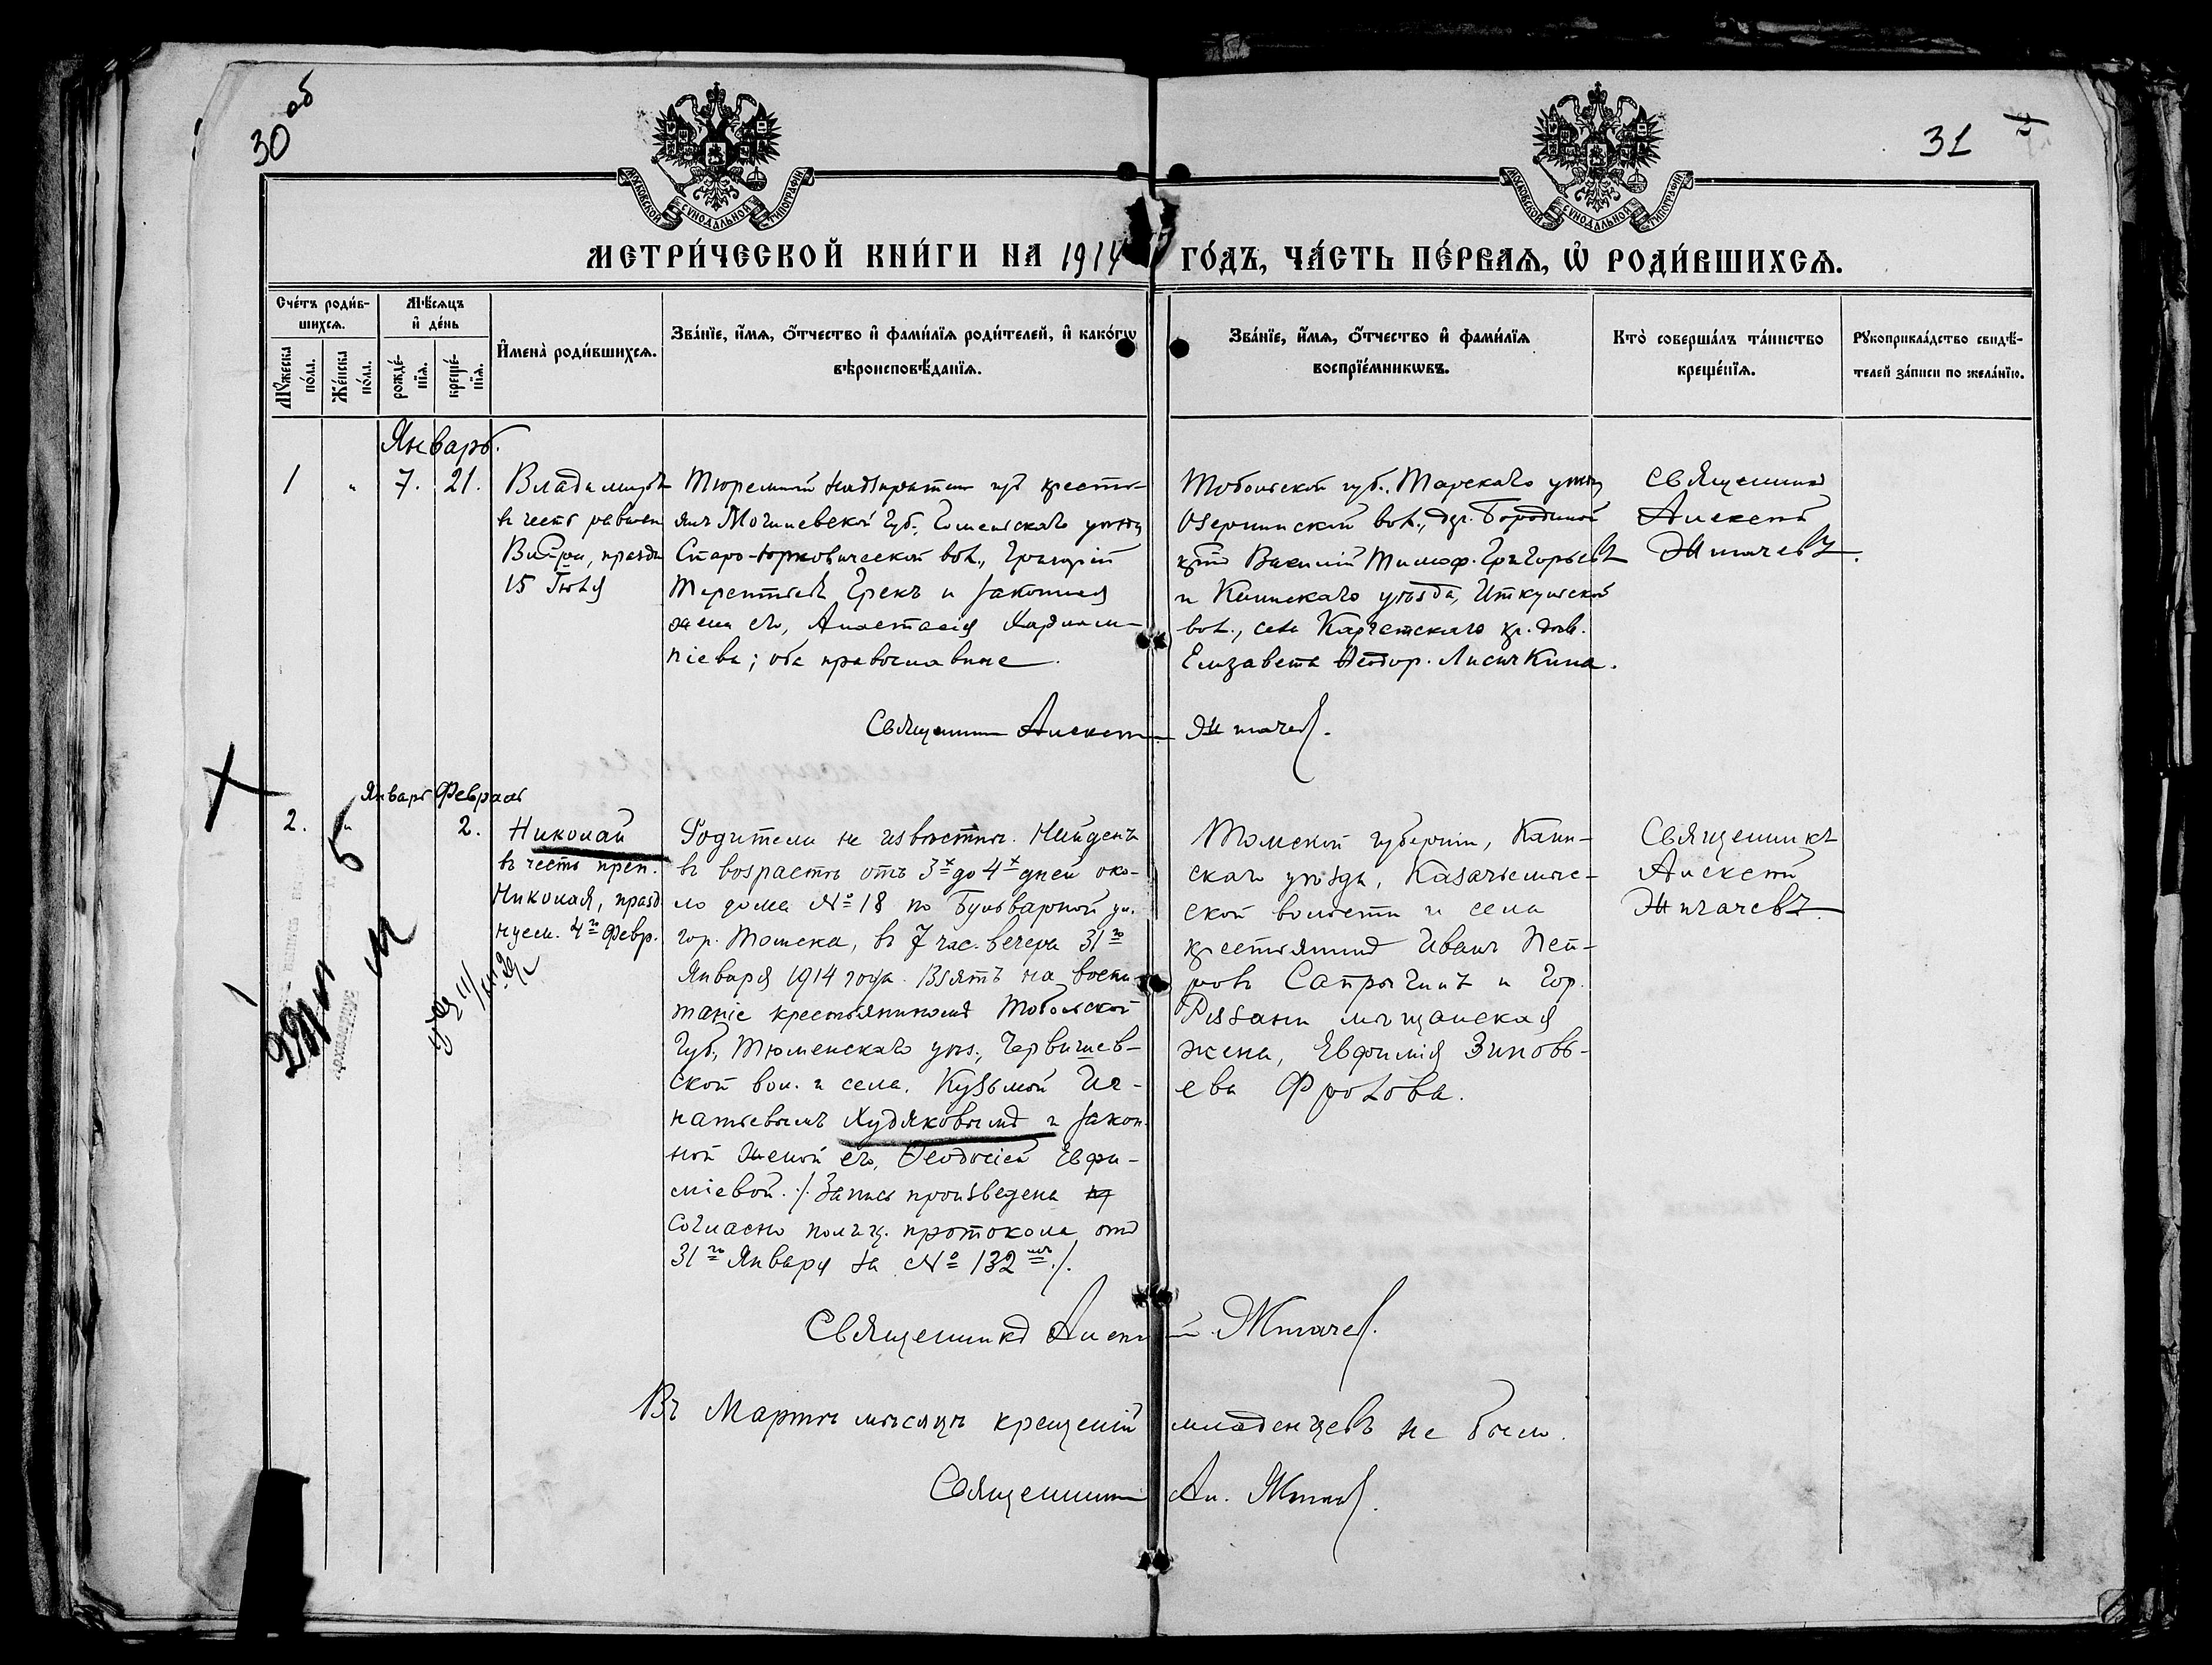 30 об
31
МОСКОВСКОЙ СѴНОДАЛЬНОЙ ТИПОГРАФІИ
МОСКОВСКОЙ СѴНОДАЛЬНОЙ ТИПОГРАФІИ
МЕТРИ́ЧЕСКОЙ КНИ́ГИ НА 1914 ГО́ДЪ, ЧА́СТЬ ПЕ́РВАѦ, Ѽ РОДИ́ВШИХСѦ.
Сче́тъ роди́в-
шихсѧ.
Мꙋ́жеска
по́ла.
Же́нска
по́ла.
Мѣ́сѧцъ
и҆ де́нь
рожде́-
нїѧ.
креще́-
нїѧ.
И҆мена̀ роди́вшихсѧ.
Зва́нїе, и҆́мѧ, ѻ҆́тчество и҆ фами́лїѧ роди́телей, и҆ како́гѡ
вѣроисповѣ́данїѧ.
Зва́нїе, и҆́мѧ, ѻ҆́тчество и҆ фами́лїѧ
воспрїе́мникѡвъ.
Кто̀ соверша́лъ та́инство
креще́нїѧ.
Рꙋкоприкла́дство свидѣ́-
телей за́писи по жела́нїю.
Январь.
1 " 7. 21.
Владимиръ
въ честь равноап
праздн
15 Іюля
Тюремный надзиратель изъ кресть-
янъ Могилевской губ. Гомельскаго уѣзда
Старо-Юрковической вол., Григорій
Терентьевъ Грекъ и законная
жена его, Анастасія Харлам-
піева; оба православные.
Тобольской губ., Тарскаго уѣзда
вол., дер. Бородиной
Василій Тимоф. Григорьевъ
и Каинскаго уѣзда, Иткульской
вол., села Каргатскаго кр.
Елизавета Ѳеодор. Лисичкина.
Священникъ
Алексѣй
Жигачевъ.
Священникъ Алексѣй Жигачевъ.
Январь Февраль
2. " 2.
Николай
въ честь преп.
Николая, празд
нуем. 4го Февр.
Родители не извѣстны. Найденъ
въ возрастѣ отъ 3х до 4х дней око-
ло дома № 18 по Бульварной ул.
гор. Томска, въ 7 час. вечера 31го
Января 1914 года. Взятъ на воспи
таніе крестьяниномъ Тобольской
губ., Тюменскаго уѣз., Червишев-
ской вол. и села, Кузьмой Иг-
натьевымъ Худяковымъ и закон-
ной женой его, Ѳеодосіей Евфи-
міевой. ./. Запись произведена
согласно полиц. протокола отъ
31го Января за № 132мъ ./.
Томской губерніи, Каин-
скаго уѣзда, Казаткуль-
ской волости и села
крестьянинъ Иванъ Пет-
ровъ Сапрыгинъ и гор.
Рязани мѣщанская
жена, Евфимія Зиновь-
ева Фролова.
Священникъ
Алексѣй
Жигачевъ.
Священникъ Алексѣй Жигачевъ.
Въ Мартѣ мѣсяцѣ крещеній младенцевъ не было.
Священникъ Ал. Жигачевъ.